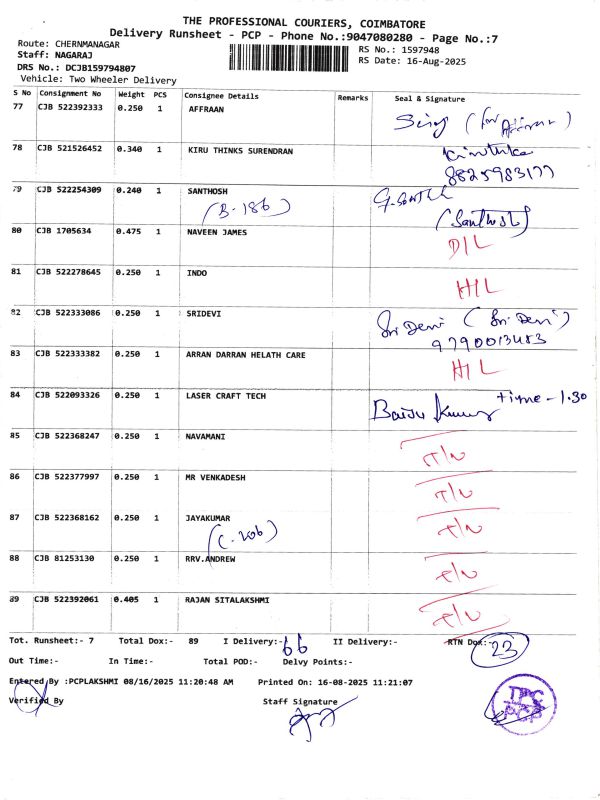 THE PROFESSIONAL COURIERS, COIMBATORE
Delivery Runsheet - PCP - Phone No.:9047080280 - Page No.:7
Route: CHERNMANAGAR
Staff: NAGARAJ
DRS No.: DCJB159794807
Vehicle: Two Wheeler Delivery
RS No.: 1597948
RS Date: 16-Aug-2025
S No Consignment No Weight PCS Consignee Details Remarks Seal & Signature
77 CJB 522392333 0.250 1 AFFRAAN
78 CJB 521526452 0.340 1 KIRU THINKS SURENDRAN
8825983177
79 CJB 522254309 0.240 1 SANTHOSH
(B-186)
(Santhosh)
80 CJB 1705634 0.475 1 NAVEEN JAMES D/L
81 CJB 522278645 0.250 1 INDO H/L
82 CJB 522333086 0.250 1 SRIDEVI Sri Devi (Sri. Devi)
9790013483
83 CJB 522333382 0.250 1 ARRAN DARRAN HELATH CARE H/L
84 CJB 522093326 0.250 1 LASER CRAFT TECH time - 1.30
85 CJB 522368247 0.250 1 NAVAMANI T/N
86 CJB 522377997 0.250 1 MR VENKADESH T/N
87 CJB 522368162 0.250 1 JAYAKUMAR T/N
(C-206)
88 CJB 81253130 0.250 1 RRV.ANDREW T/N
89 CJB 522392061 0.405 1 RAJAN SITALAKSHMI T/N
Tot. Runsheet:- 7 Total Dox:- 89 I Delivery:- 66 II Delivery:- RTN Dox:- 23
Out Time:- In Time:- Total POD:- Delvy Points:-
Entered By :PCPLAKSHMI 08/16/2025 11:20:48 AM Printed On: 16-08-2025 11:21:07
Verified By Staff Signature
TPC
PCP